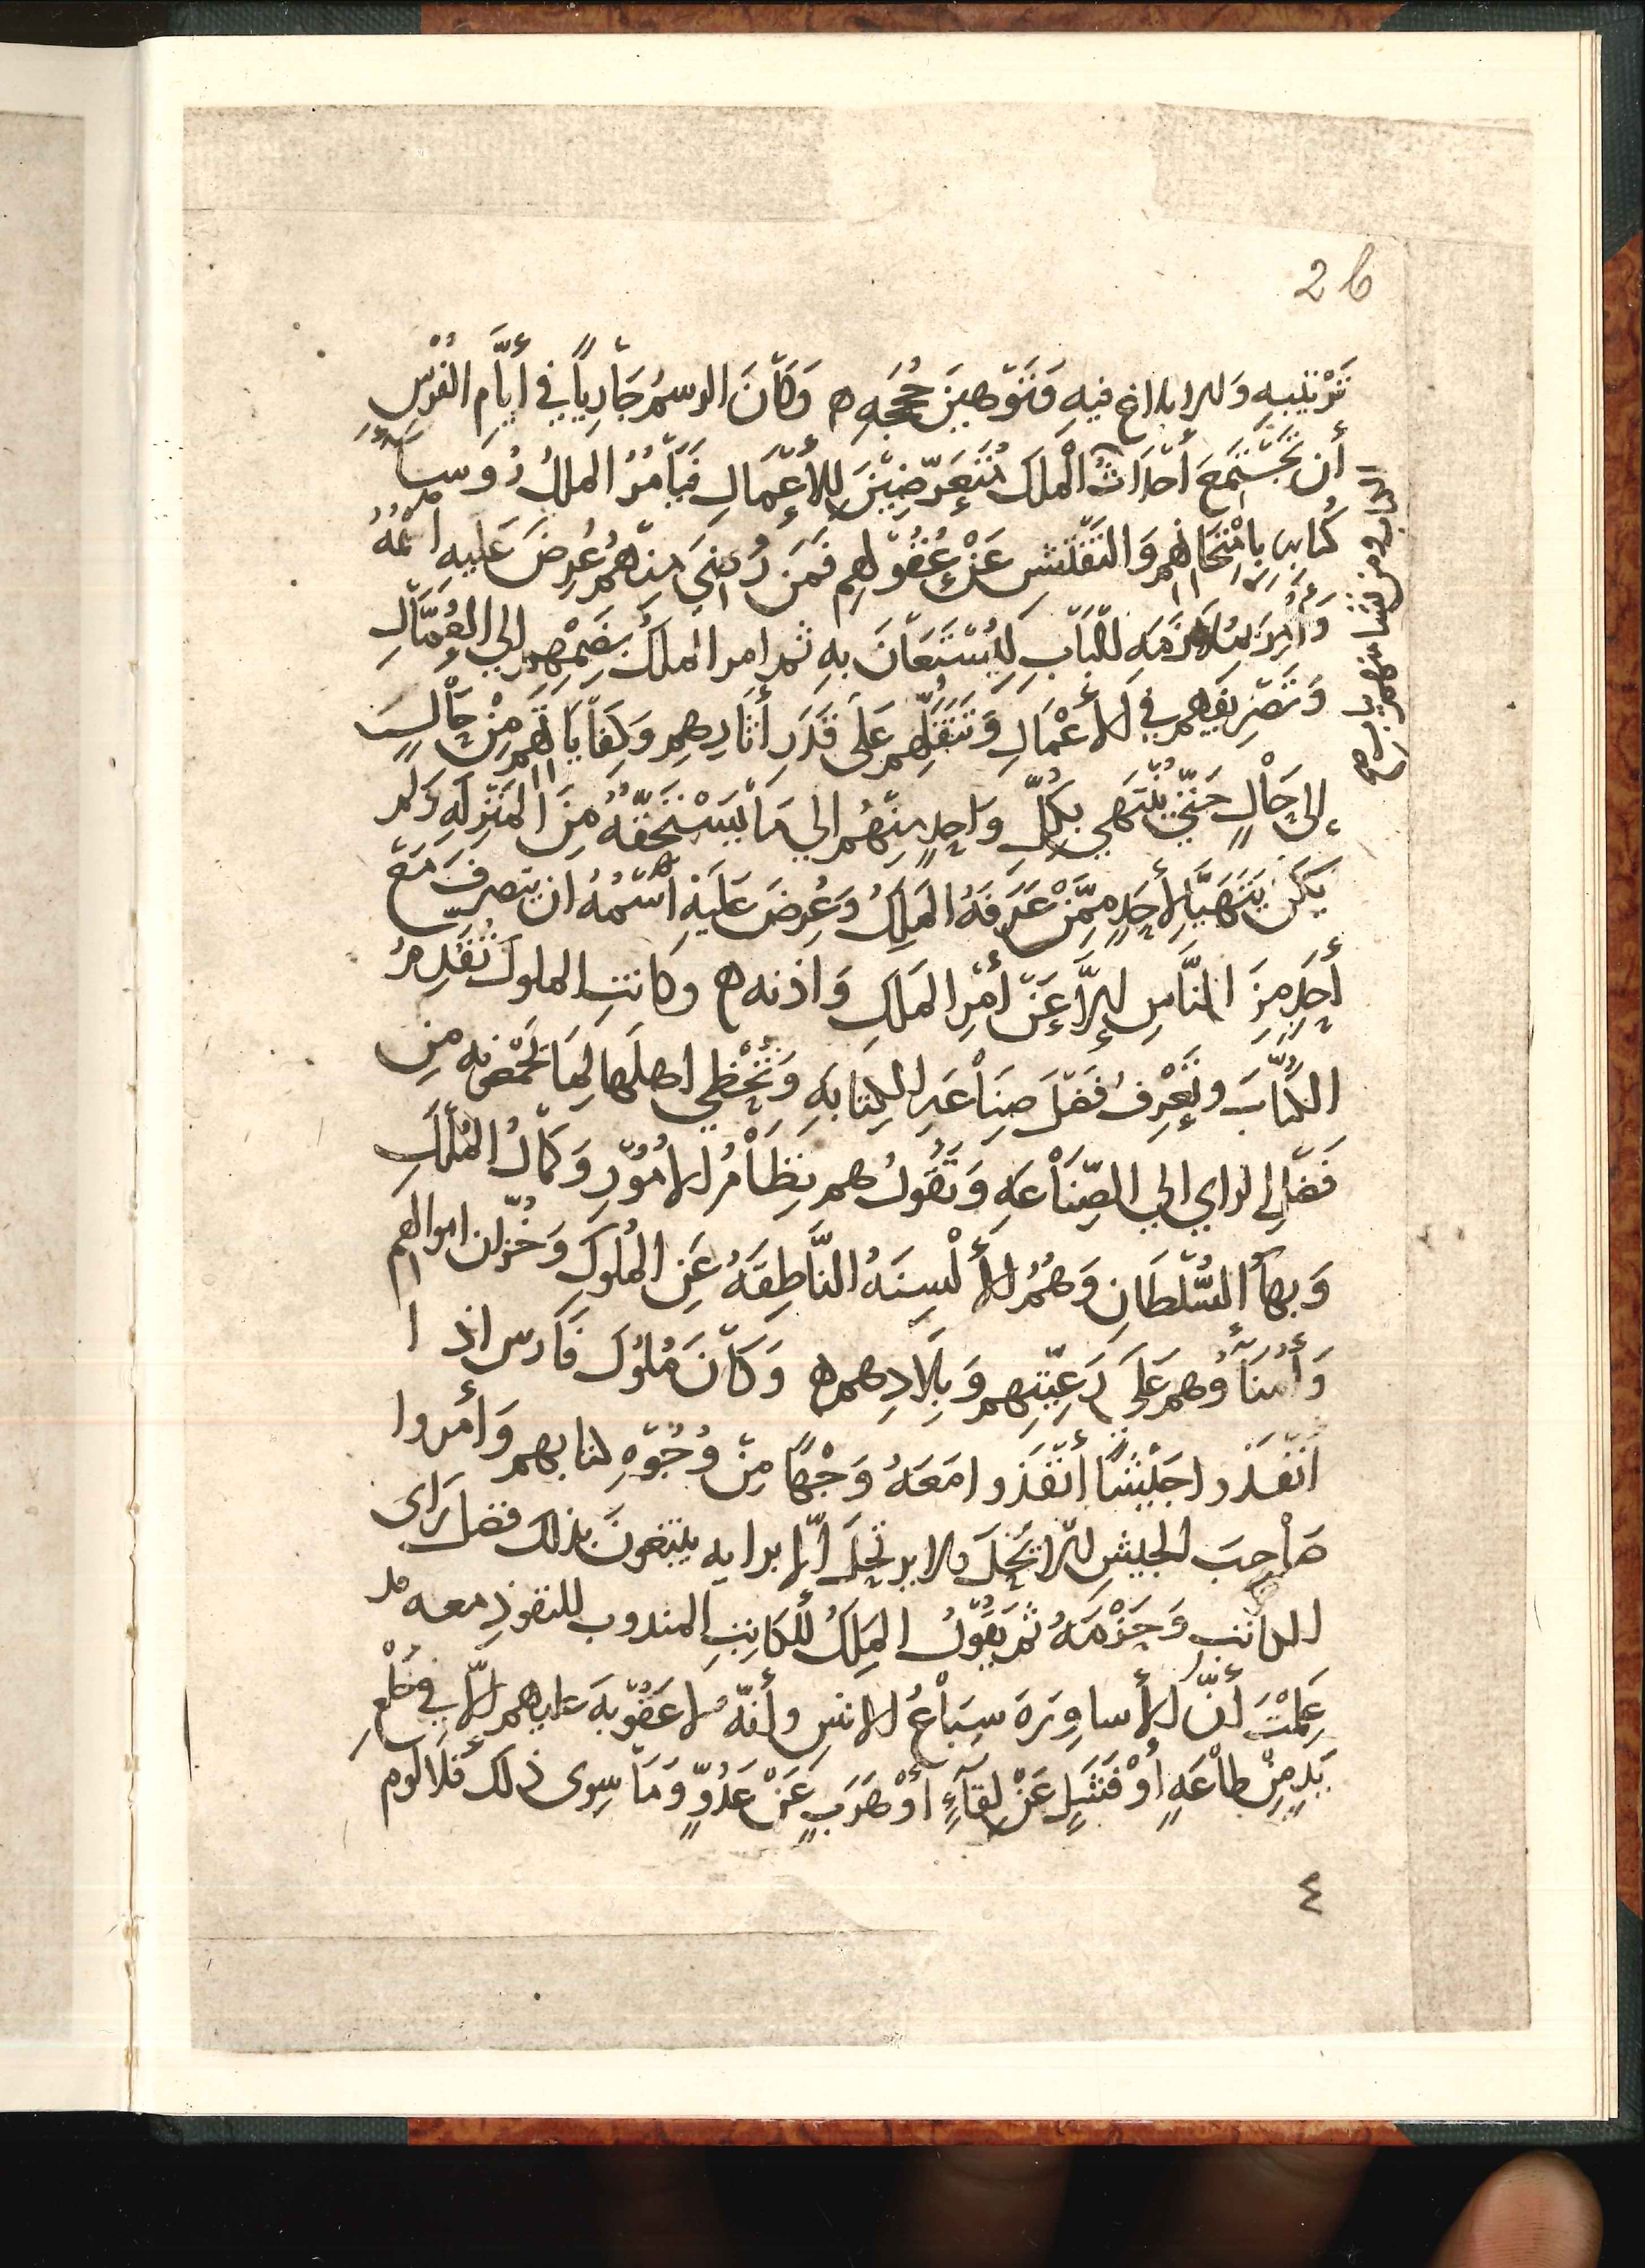 26
تَرْتِيبِهِ وَالابلاغ فِيهِ وَتَوْهِينَ حُجَجِهِ ه وَكَانَ الرسمُ جَارِياً فِي أَيَّامِ الفُرْسِ
أَن تَجْتَمِعَ أَحْدَاثُ الْمَلِكِ مُتَعَرِّضِيْنَ لِلأَعْمَالِ فَيَأْمُرُ المَلِكُ رُوسآءَ
كُتابِه بِامْتِحَانِهِمِ وَالتَفْتِيشِ عَنْ عُقُوْلِهِم فَمَن رُضِيَ مِنهُمْ عُرِضَ عَلَيهِ اسْمُهُ
وَأُمِرَ بِمُلَازَمَهِ البَابِ لِيُسْتَعَانَ بِهِ ثم امر المَلِكُ بِضَمِّهِم إلي العُمَّالِ
وَتَصْرِيفِهِم في الأَعْمَالِ وَتَنَقُّلِهِم عَلَى قَدَرِ أَثَارِهِم وَكِفَايَاتِهِم مِنْ حَالٍ
إِلى حَالٍ حَتَّي يُنْتَهي بِكُلِّ وَاحِدٍ مِنْهُم الي مَا يَسْتَحِقّهُ مِنَ المَنْزِلَهِ وَلم
يَكُن يَتَهَيَّا لِأَحَدٍ مِمَّنْ عَرَفَهُ المَلِكُ وَعُرِضَ عَلَيْهِ اسْمُهُ ان يتصرفَ مَعَ
أَحَدٍ مِنَ النَّاسِ إِلَّا عَنْ أَمْرِ المَلِكِ وَاذنه ه وكانتِ الملوكُ تُقَدِّمُ
الكُتَّابَ وتَعْرِفُ فَضْلَ صِنَاعَهِ الكِتابَهِ وَتُحْظِي اهلَها لِمَا تَجْمَعُه مِن
فَضْلِ الراي الي الصِّنَاعَهِ وَتَقُولُ هم نِظَامُ الامُوْرِ وَكَمَالُ المُلْكِ
وَبهآ السُّلْطَانِ وَهُمُ الأَلْسِنَهُ النَّاطِقَهُ عَنِ المُلُوكِ وَخُزّان اموالهم
وَأُمَنَاؤُهم عَلَى رَعِيَّتِهِم وَبِلَادِهِم ه وَكَانَ مُلُوكُ فَارس اذا
أَنْفَذُوا جَيْشاً أَنْفَذُوا مَعَهُ وَجْهاً مِنْ وُجُوْهِ كتابهم وَأَمروا
صَاحِبَ الجيشِ الّا يَحُلَّ ولا يرتحِلَ الّا برايه يبتغونَ بذلك فضل رَاي
الكاتب وَحَزْمَهُ ثم يَقُوْلُ المَلِكُ لِلكَاتِبِ المندوب للنفوذِ معه قد
عَلِمْتَ أَنَّ الأَساوِرَهَ سِبَاعُ الانسِ وأنّه لا عقُوْبَهَ عليهم الّا فِي خَلْعِ
يَدٍ مِنْ طَاعَهٍ أَوْ فَشَلٍ عَنْ لِقَآءٍ أَوْ هَرَبٍ عَنْ عَدُوٍّ وَمَا سِوى ذلك فَلَا لوم
٤